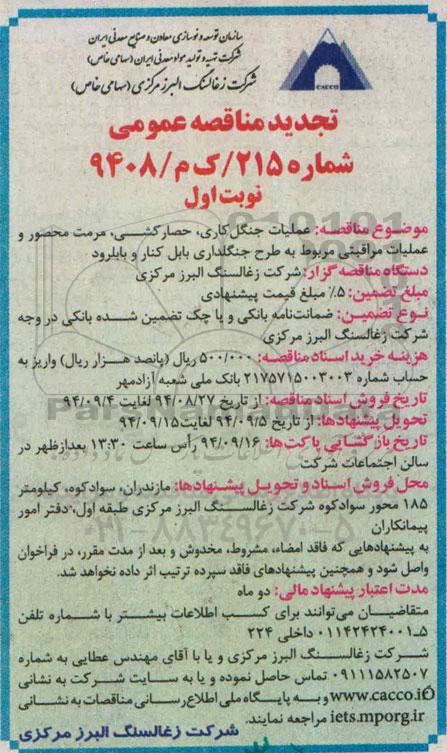 سازمان توسعه و نوسازی معادن و صنایع معدنی ایران
شرکت تهیه و تولید مواد معدنی ایران (سهامی خاص)
شرکت زغالسنگ البرز مرکزی (سهامی خاص)
CACCO
تجدید مناقصه عمومی
شماره ۲۱۵/ک م/۹۴۰۸
نوبت اول
موضوع مناقصه: عملیات جنگل کاری، حصارکشی، مرمت محصور و
عملیات مراقبتی مربوط به طرح جنگلداری بابل کنار و بابلرود
دستگاه مناقصه گزار: شرکت زغالسنگ البرز مرکزی
مبلغ تضمین: ۵٪ مبلغ قیمت پیشنهادی
نوع تضمین: ضمانت‌نامه بانکی و یا چک تضمین شده بانکی در وجه
شرکت زغالسنگ البرز مرکزی
هزینه خرید اسناد مناقصه: ۵۰۰/۰۰۰ ریال (پانصد هزار ریال) واریز به
حساب شماره ۲۱۷۵۷۱۵۰۰۳۰۰۳ بانک ملی شعبه آزادمهر
تاریخ فروش اسناد مناقصه: از تاریخ ۹۴/۰۸/۲۷ لغایت ۹۴/۰۹/۴
تحویل پیشنهادها: از تاریخ ۹۴/۰۹/۵ لغایت ۹۴/۰۹/۱۵
تاریخ بازگشایی پاکت‌ها: ۹۴/۰۹/۱۶ رأس ساعت ۱۳:۳۰ بعدازظهر در
سالن اجتماعات شرکت
محل فروش اسناد و تحویل پیشنهادها: مازندران، سوادکوه، کیلومتر
۱۸۵ محور سوادکوه شرکت زغالسنگ البرز مرکزی طبقه اول، دفتر امور
پیمانکاران
به پیشنهادهایی که فاقد امضاء، مشروط، مخدوش و بعد از مدت مقرر، در فراخوان
واصل شود و همچنین پیشنهادهای فاقد سپرده ترتیب اثر داده نخواهد شد.
مدت اعتبار پیشنهاد مالی: دو ماه
متقاضیان می‌توانند برای کسب اطلاعات بیشتر با شماره تلفن
۵-۰۱۱۴۲۴۲۴۰۰۱ داخلی ۲۲۴
شرکت زغالسنگ البرز مرکزی و یا با آقای مهندس عطایی به شماره
۰۹۱۱۱۵۸۲۵۰۷ تماس حاصل نموده و یا به سایت شرکت به نشانی
www.cacco.ir و به پایگاه ملی اطلاع رسانی مناقصات به نشانی
iets.mporg.ir مراجعه نمایند.
شرکت زغالسنگ البرز مرکزی
ParsNamadData
۰۲۱-۸۸۳۴۹۶۷۰-۵